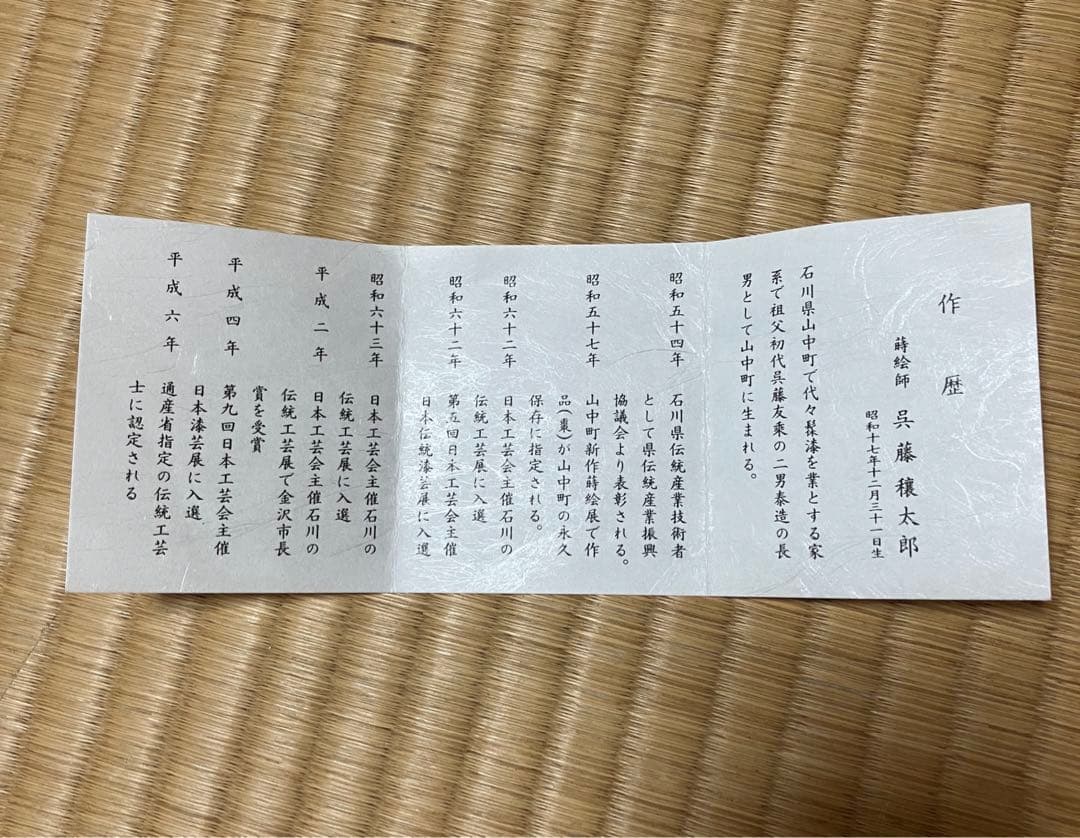 作歴
蒔絵師 呉藤穰太郎
昭和十七年十二月三十一日生
石川県山中町で代々髹漆を業とする家
系で祖父初代呉藤友乘の二男泰造の長
男として山中町に生まれる。
昭和五十四年 石川県伝統産業技術者
として県伝統産業振興
協議会より表彰される。
昭和五十七年 山中町新作蒔絵展で作
品(棗)が山中町の永久
保存に指定される。
昭和六十二年 日本工芸会主催石川の
伝統工芸展に入選
昭和六十二年 第五回日本工芸会主催
日本伝統漆芸展に入選
昭和六十三年 日本工芸会主催石川の
伝統工芸展に入選
平成二年 日本工芸会主催石川の
伝統工芸展で金沢市長
賞を受賞
平成四年 第九回日本工芸会主催
日本漆芸展に入選
平成六年 通産省指定の伝統工芸
士に認定される